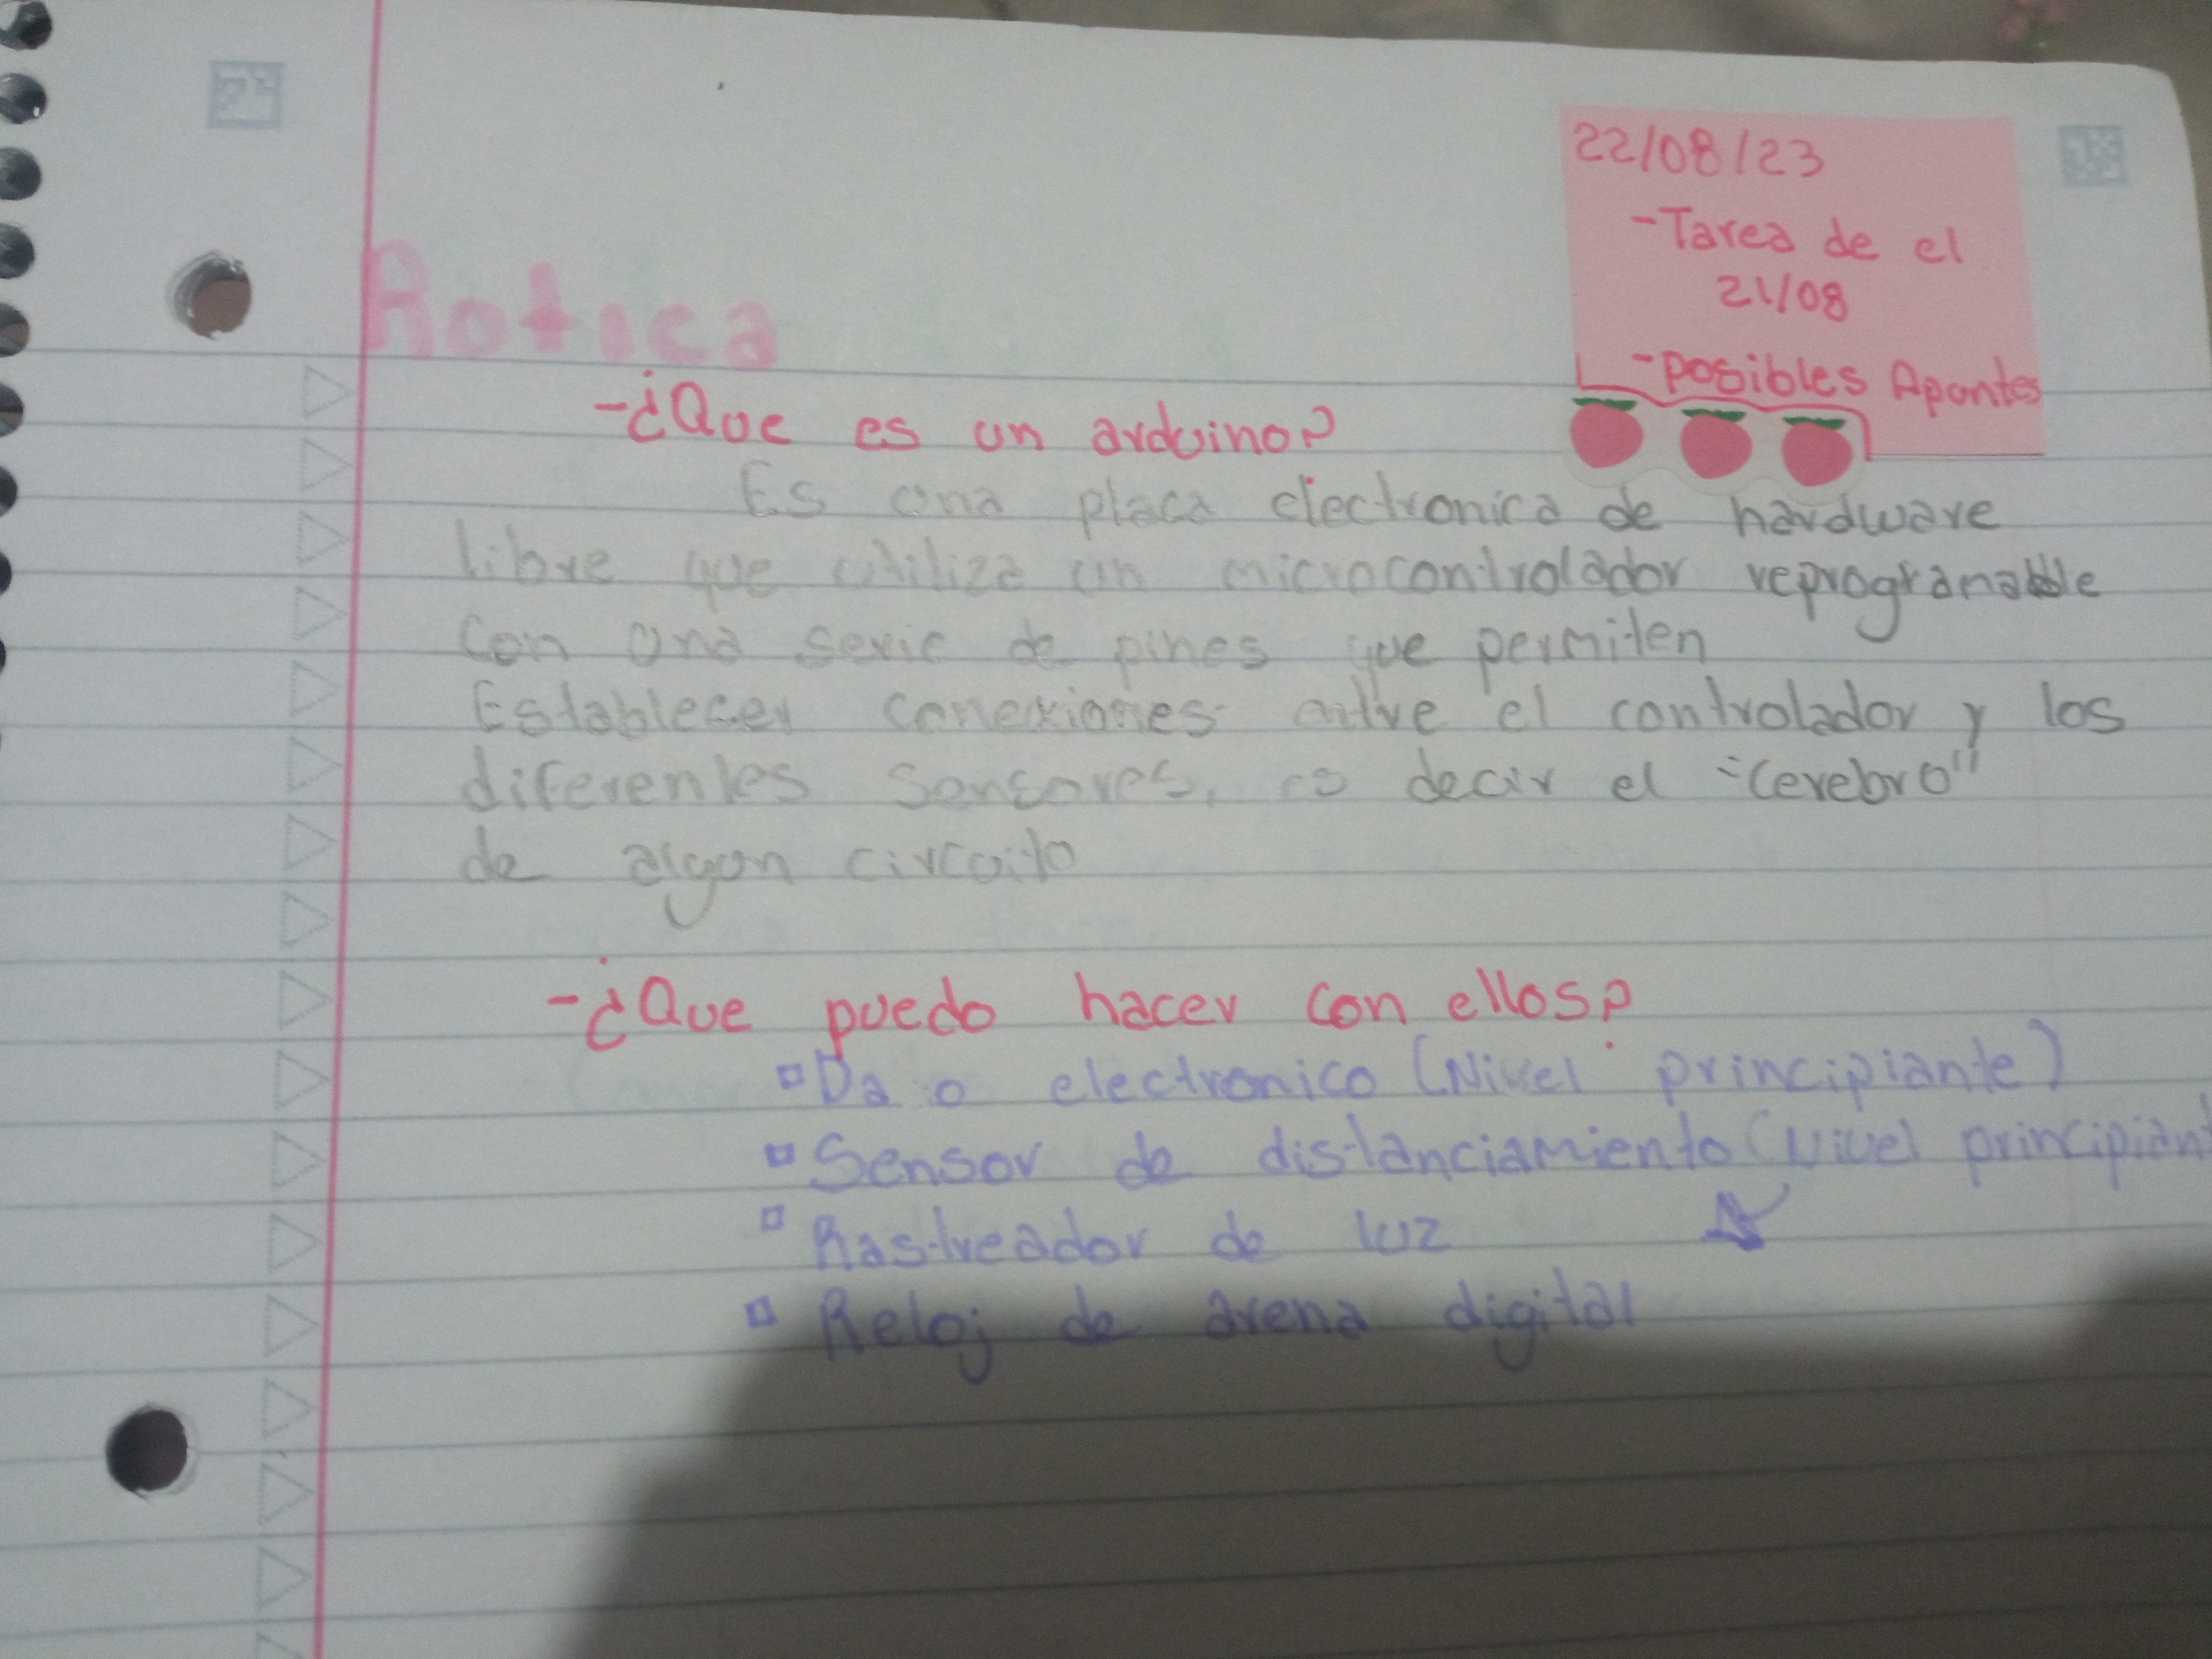 22/08/23
-Tarea de el
21/08
-posibles Apontes
Rotica
-¿Que es un arduino?
Es una placa electronica de hardware
libre que utiliza un microcontrolador reprogramable
Con una serie de pines que permiten
Establecer conexiones entre el controlador y los
diferentes Sensores, es decir el "Cerebro"
de algun circuito
-¿Que puedo hacer con ellos?
Da o electronico (Nivel principiante)
Sensor de distanciamiento (Nivel principiant
Rastreador de luz
Reloj de arena digital